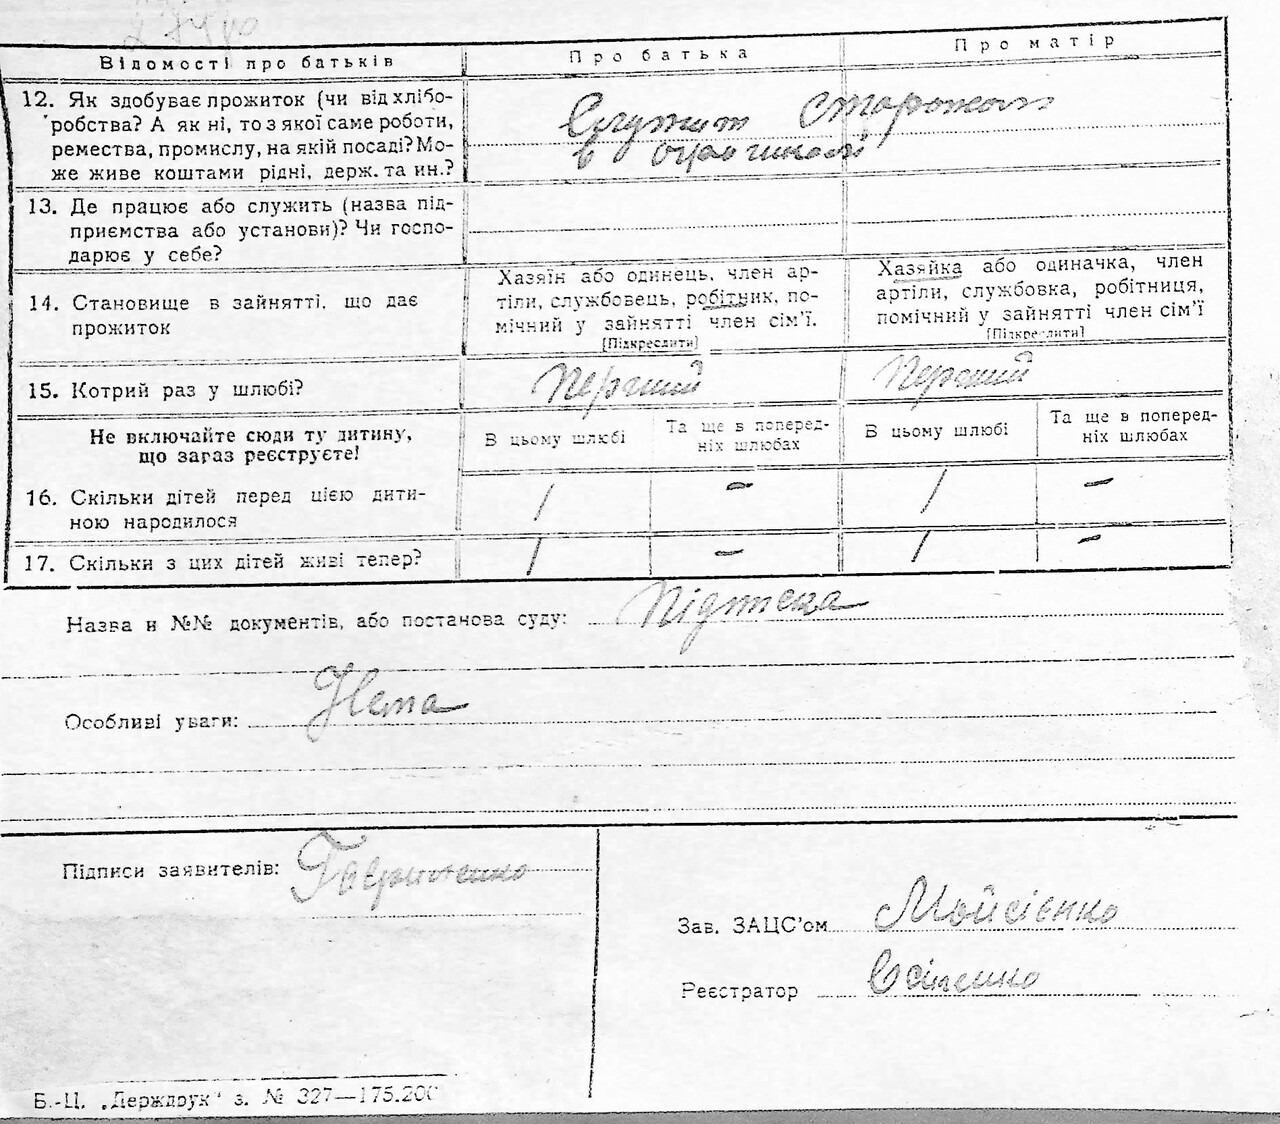 Відомості про батьків
Про батька
Про матір
12. Як здобуває прожиток (чи від хлібо-
робства? А як ні, то з якої саме роботи,
ремества, промислу, на якій посаді? Мо-
же живе коштами рідні, держ. та ин.?
Служит сторожом
в
13. Де працює або служить (назва під-
приємства або установи)? Чи госпо-
дарює у себе?
14. Становище в зайнятті, що дає
прожиток
Хазяїн або одинець, член ар-
тіли, службовець, робітник, по-
мічний у зайнятті член сім'ї.
[Підкреслити]
Хазяйка або одиначка, член
артіли, службовка, робітниця,
помічний у зайнятті член сім'ї
[Підкреслити]
15. Котрий раз у шлюбі?
Перший
Перший
Не включайте сюди ту дитину,
що зараз реєструєте!
В цьому шлюбі
Та ще в поперед-
ніх шлюбах
В цьому шлюбі
Та ще в поперед-
ніх шлюбах
16. Скільки дітей перед цією дити-
ною народилося
1 - 1 -
17. Скільки з цих дітей живі тепер?
1 - 1 -
Назва и №№ документів, або постанова суду: Підписка
Особливі уваги: Нема
Підписи заявителів: Гавриленко
Зав. ЗАЦС'ом Мойсієнко
Реєстратор Осіпенко
Б.-Ц. „Держдрук" з. № 327—175.200